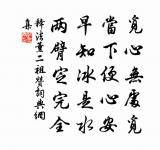 覓心無處覓
當下便心安
早知冰是水
兩臂空完全
釋法薰二祖贊詞典網
集